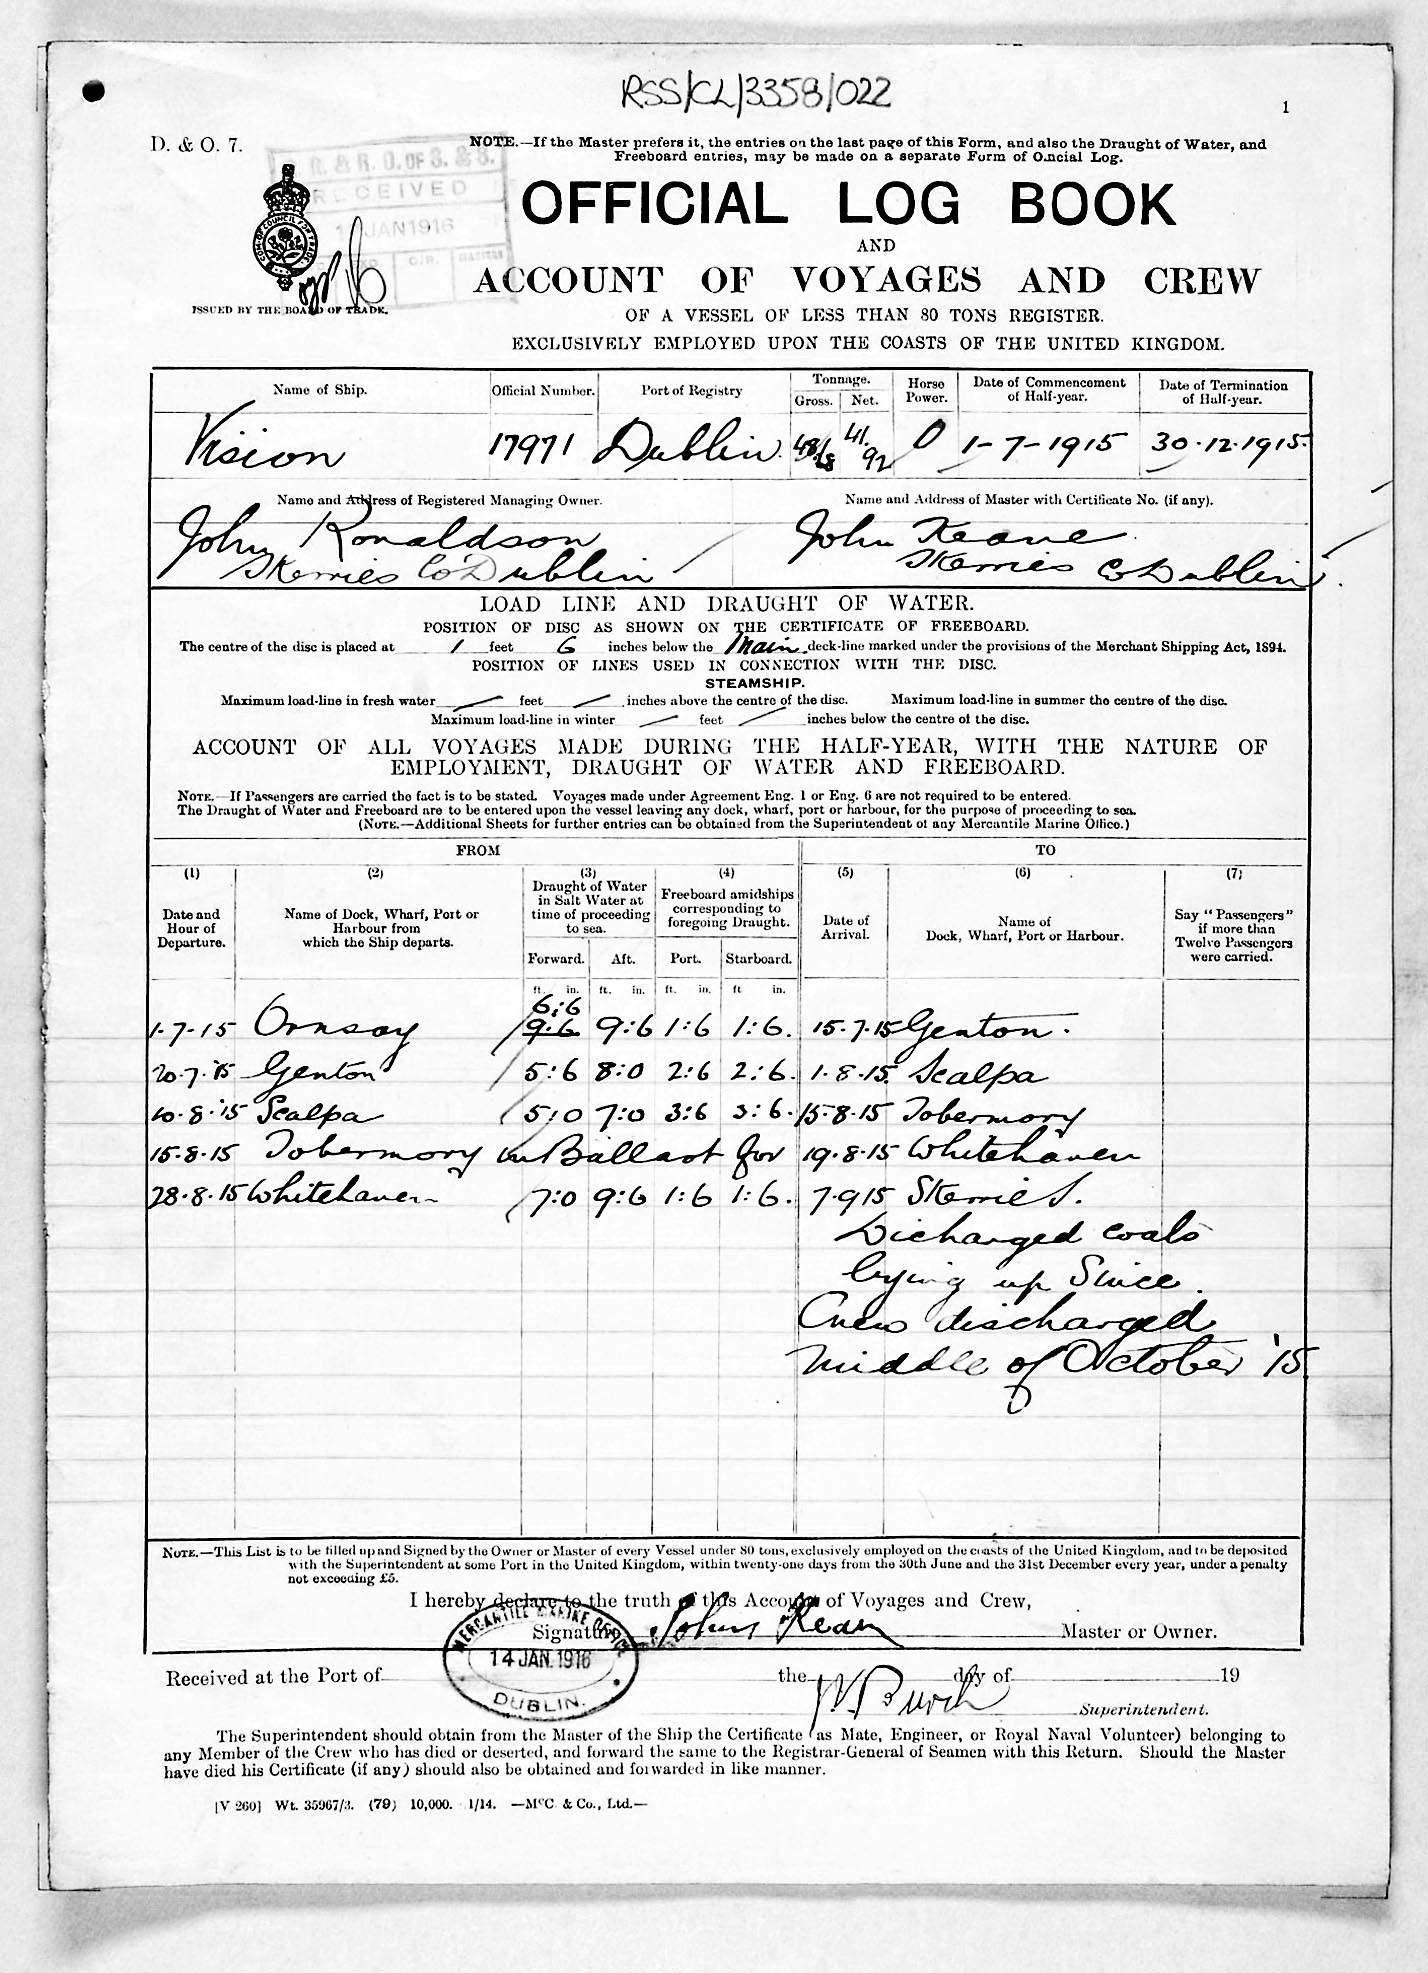 RSS/CL/3358/022
1
D. & O. 7.
NOTE.—If the Master prefers it, the entries on the last page of this Form, and also the Draught of Water, and
Freeboard entries, may be made on a separate Form of Official Log.
R. & R. O. OF S. & S.
RECEIVED
JAN 1916
OFFICIAL LOG BOOK
AND
ACCOUNT OF VOYAGES AND CREW
ISSUED BY THE BOARD OF TRADE.
OF A VESSEL OF LESS THAN 80 TONS REGISTER.
EXCLUSIVELY EMPLOYED UPON THE COASTS OF THE UNITED KINGDOM.
Name of Ship. Official Number. Port of Registry Tonnage. Gross. Net. Horse Power. Date of Commencement of Half-year. Date of Termination of Half-year.
Vision 17971 Dublin 48/68 41.92 0 1-7-1915 30.12.1915.
Name and Address of Registered Managing Owner. Name and Address of Master with Certificate No. (if any).
John Ronaldson John Keane
Skerries Co Dublin Skerries Co Dublin.
LOAD LINE AND DRAUGHT OF WATER.
POSITION OF DISC AS SHOWN ON THE CERTIFICATE OF FREEBOARD.
The centre of the disc is placed at 1 feet 6 inches below the Main deck-line marked under the provisions of the Merchant Shipping Act, 1894.
POSITION OF LINES USED IN CONNECTION WITH THE DISC.
STEAMSHIP.
Maximum load-line in fresh water / feet / inches above the centre of the disc. Maximum load-line in summer the centre of the disc.
Maximum load-line in winter / feet / inches below the centre of the disc.
ACCOUNT OF ALL VOYAGES MADE DURING THE HALF-YEAR, WITH THE NATURE OF
EMPLOYMENT, DRAUGHT OF WATER AND FREEBOARD.
NOTE.—If Passengers are carried the fact is to be stated. Voyages made under Agreement Eng. 1 or Eng. 6 are not required to be entered.
The Draught of Water and Freeboard are to be entered upon the vessel leaving any dock, wharf, port or harbour, for the purpose of proceeding to sea.
(NOTE.—Additional Sheets for further entries can be obtained from the Superintendent of any Mercantile Marine Office.)
FROM TO
(1) (2) (3) (4) (5) (6) (7)
Date and Hour of Departure. Name of Dock, Wharf, Port or Harbour from which the Ship departs. Draught of Water in Salt Water at time of proceeding to sea. Freeboard amidships corresponding to foregoing Draught. Date of Arrival. Name of Dock, Wharf, Port or Harbour. Say "Passengers" if more than Twelve Passengers were carried.
Forward. Aft. Port. Starboard.
ft. in. ft. in. ft. in. ft in.
6:6
1-7-15 Ornsay 9.6 9:6 1:6 1:6. 15-7-15 Genton.
20-7-15 Genton 5:6 8:0 2:6 2:6. 1.8.15. Scalpa
10-8-'15 Scalpa 5:0 7:0 3:6 3:6. 15-8-15 Tobermory
15-8-15 Tobermory in Ballast for 19-8-15 Whitehaven
28-8-15 Whitehaven 7:0 9:6 1:6 1:6. 7.9.15 Skerries.
Dicharged coals
lying up Since.
Crew discharged
middle of October '15.
NOTE.—This List is to be filled up and Signed by the Owner or Master of every Vessel under 80 tons, exclusively employed on the coasts of the United Kingdom, and to be deposited
with the Superintendent at some Port in the United Kingdom, within twenty-one days from the 30th June and the 31st December every year, under a penalty
not exceeding £5.
I hereby declare to the truth of this Account of Voyages and Crew,
Signature John Kean Master or Owner.
MERCANTILE MARINE OFFICE
14 JAN. 1916
DUBLIN.
Received at the Port of the day of 19
Superintendent.
The Superintendent should obtain from the Master of the Ship the Certificate (as Mate, Engineer, or Royal Naval Volunteer) belonging to
any Member of the Crew who has died or deserted, and forward the same to the Registrar-General of Seamen with this Return. Should the Master
have died his Certificate (if any) should also be obtained and forwarded in like manner.
[V 260] Wt. 35967/3. (79) 10,000. 1/14. —McC. & Co., Ltd.—